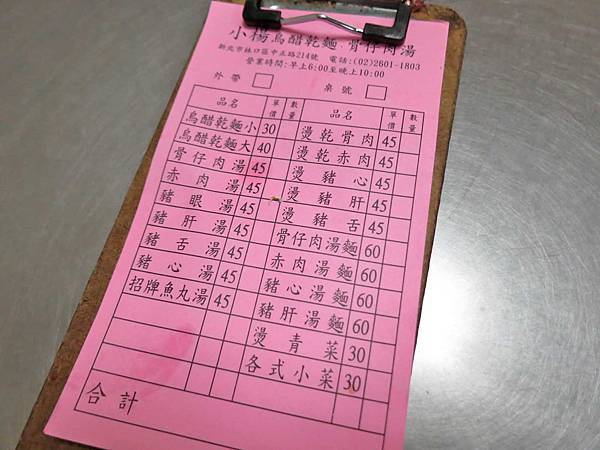 小楊烏醋乾麵.骨仔肉湯
新北市林口區中正路214號 電話:(02)2601-1803
營業時間:早上6:00至晚上10:00
外帶 桌號
品名 單價 數量 品名 單價 數量
烏醋乾麵小 30 燙乾骨肉 45
烏醋乾麵大 40 燙乾赤肉 45
骨仔肉湯 45 燙豬心 45
赤肉湯 45 燙豬肝 45
豬眼湯 45 燙豬舌 45
豬肝湯 45 骨仔肉湯麵 60
豬舌湯 45 赤肉湯麵 60
豬心湯 45 豬心湯麵 60
招牌魚丸湯 45 豬肝湯麵 60
燙青菜 30
各式小菜 30
合計